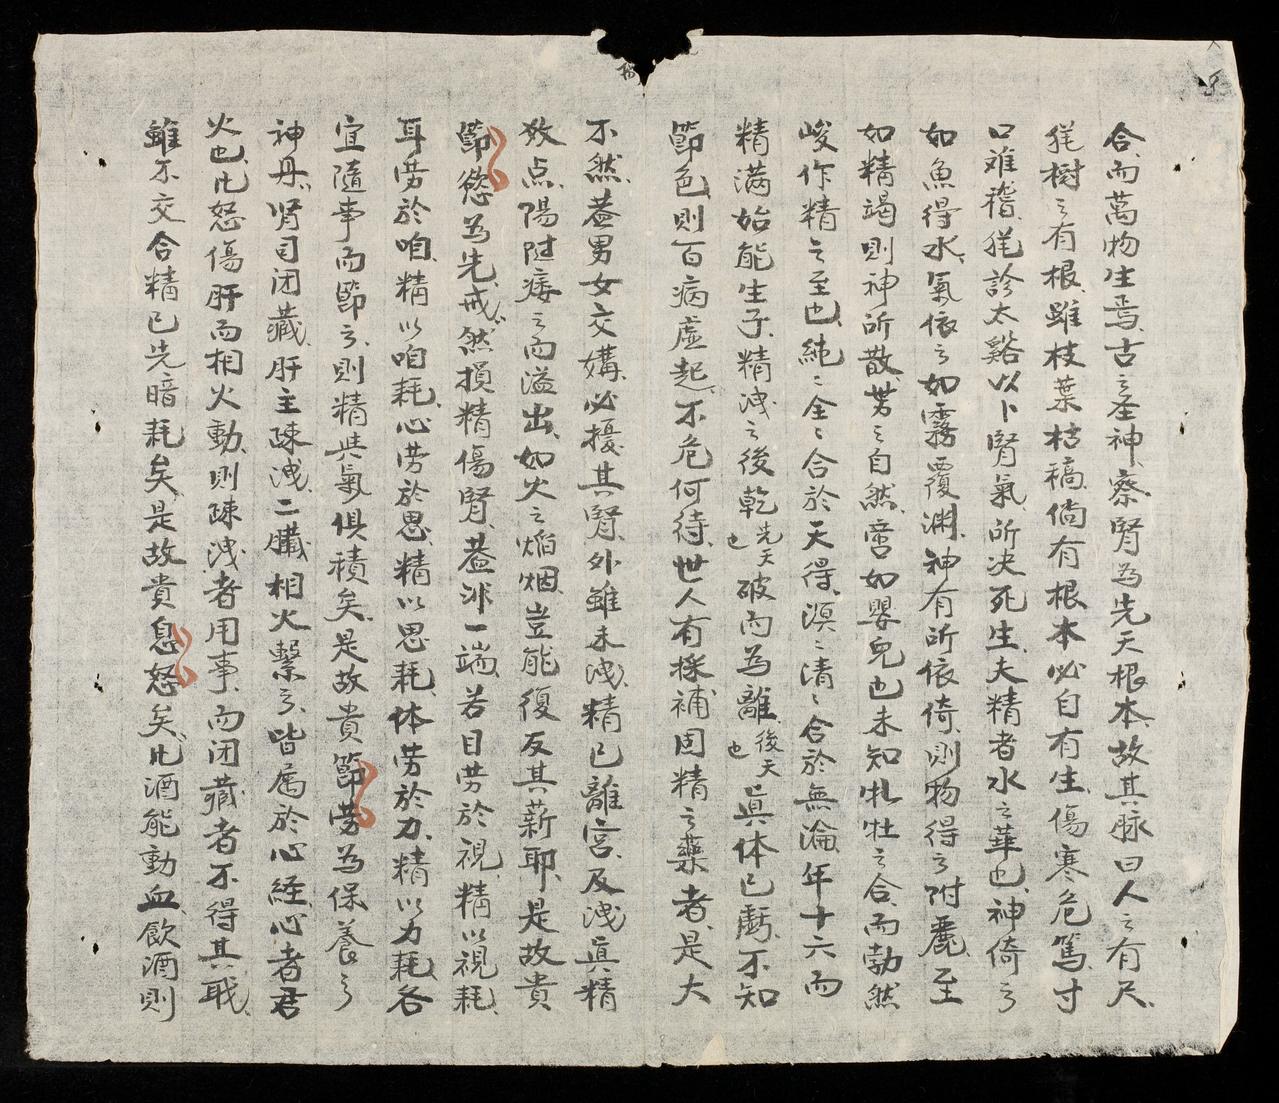 合而萬物生焉古之圣神察腎為先天根本故其脉曰人之有尺
犹樹之有根雖枝葉枯稿倘有根本必自有生傷寒危篤寸
口难稽犹診太谿以卜腎氣所决死生夫精者水之華也神倚之
如魚得水氣依之如霧覆渊神有所依倚則物得之附麗至
如精竭則神所散劳之自然啻如嬰兒也未知牝牡之合而勃然
峻作精之至也純〻全〻合於天得溟〻清〻合於無淪年十六而
精满始能生子精洩之後乾先天也破而為離後天也真体已虧不知
節色則百病虚起不危何待世人有採補固精之藥者是大
不然蓋男女交媾必擾其腎外雖未洩精已離宮及洩真精
数点陽随痿之而溢出如火之焰烟豈能復反其薪耶是故貴
節慾為先戒然損精傷腎蓋非一端若目劳於視精以視耗
耳劳於咱精以咱耗心劳於思精以思耗体劳於力精以力耗各
宜隨事而節之則精与氣俱積矣是故貴節劳為保養之
神丹肾司闭藏肝主疎洩二臟相火繫之皆属於心経心者君
火也凡怒傷肝而相火動則疎洩者用事而闭藏者不得其职
雖不交合精已先暗耗矣是故貴息怒矣凡酒能動血飲酒則